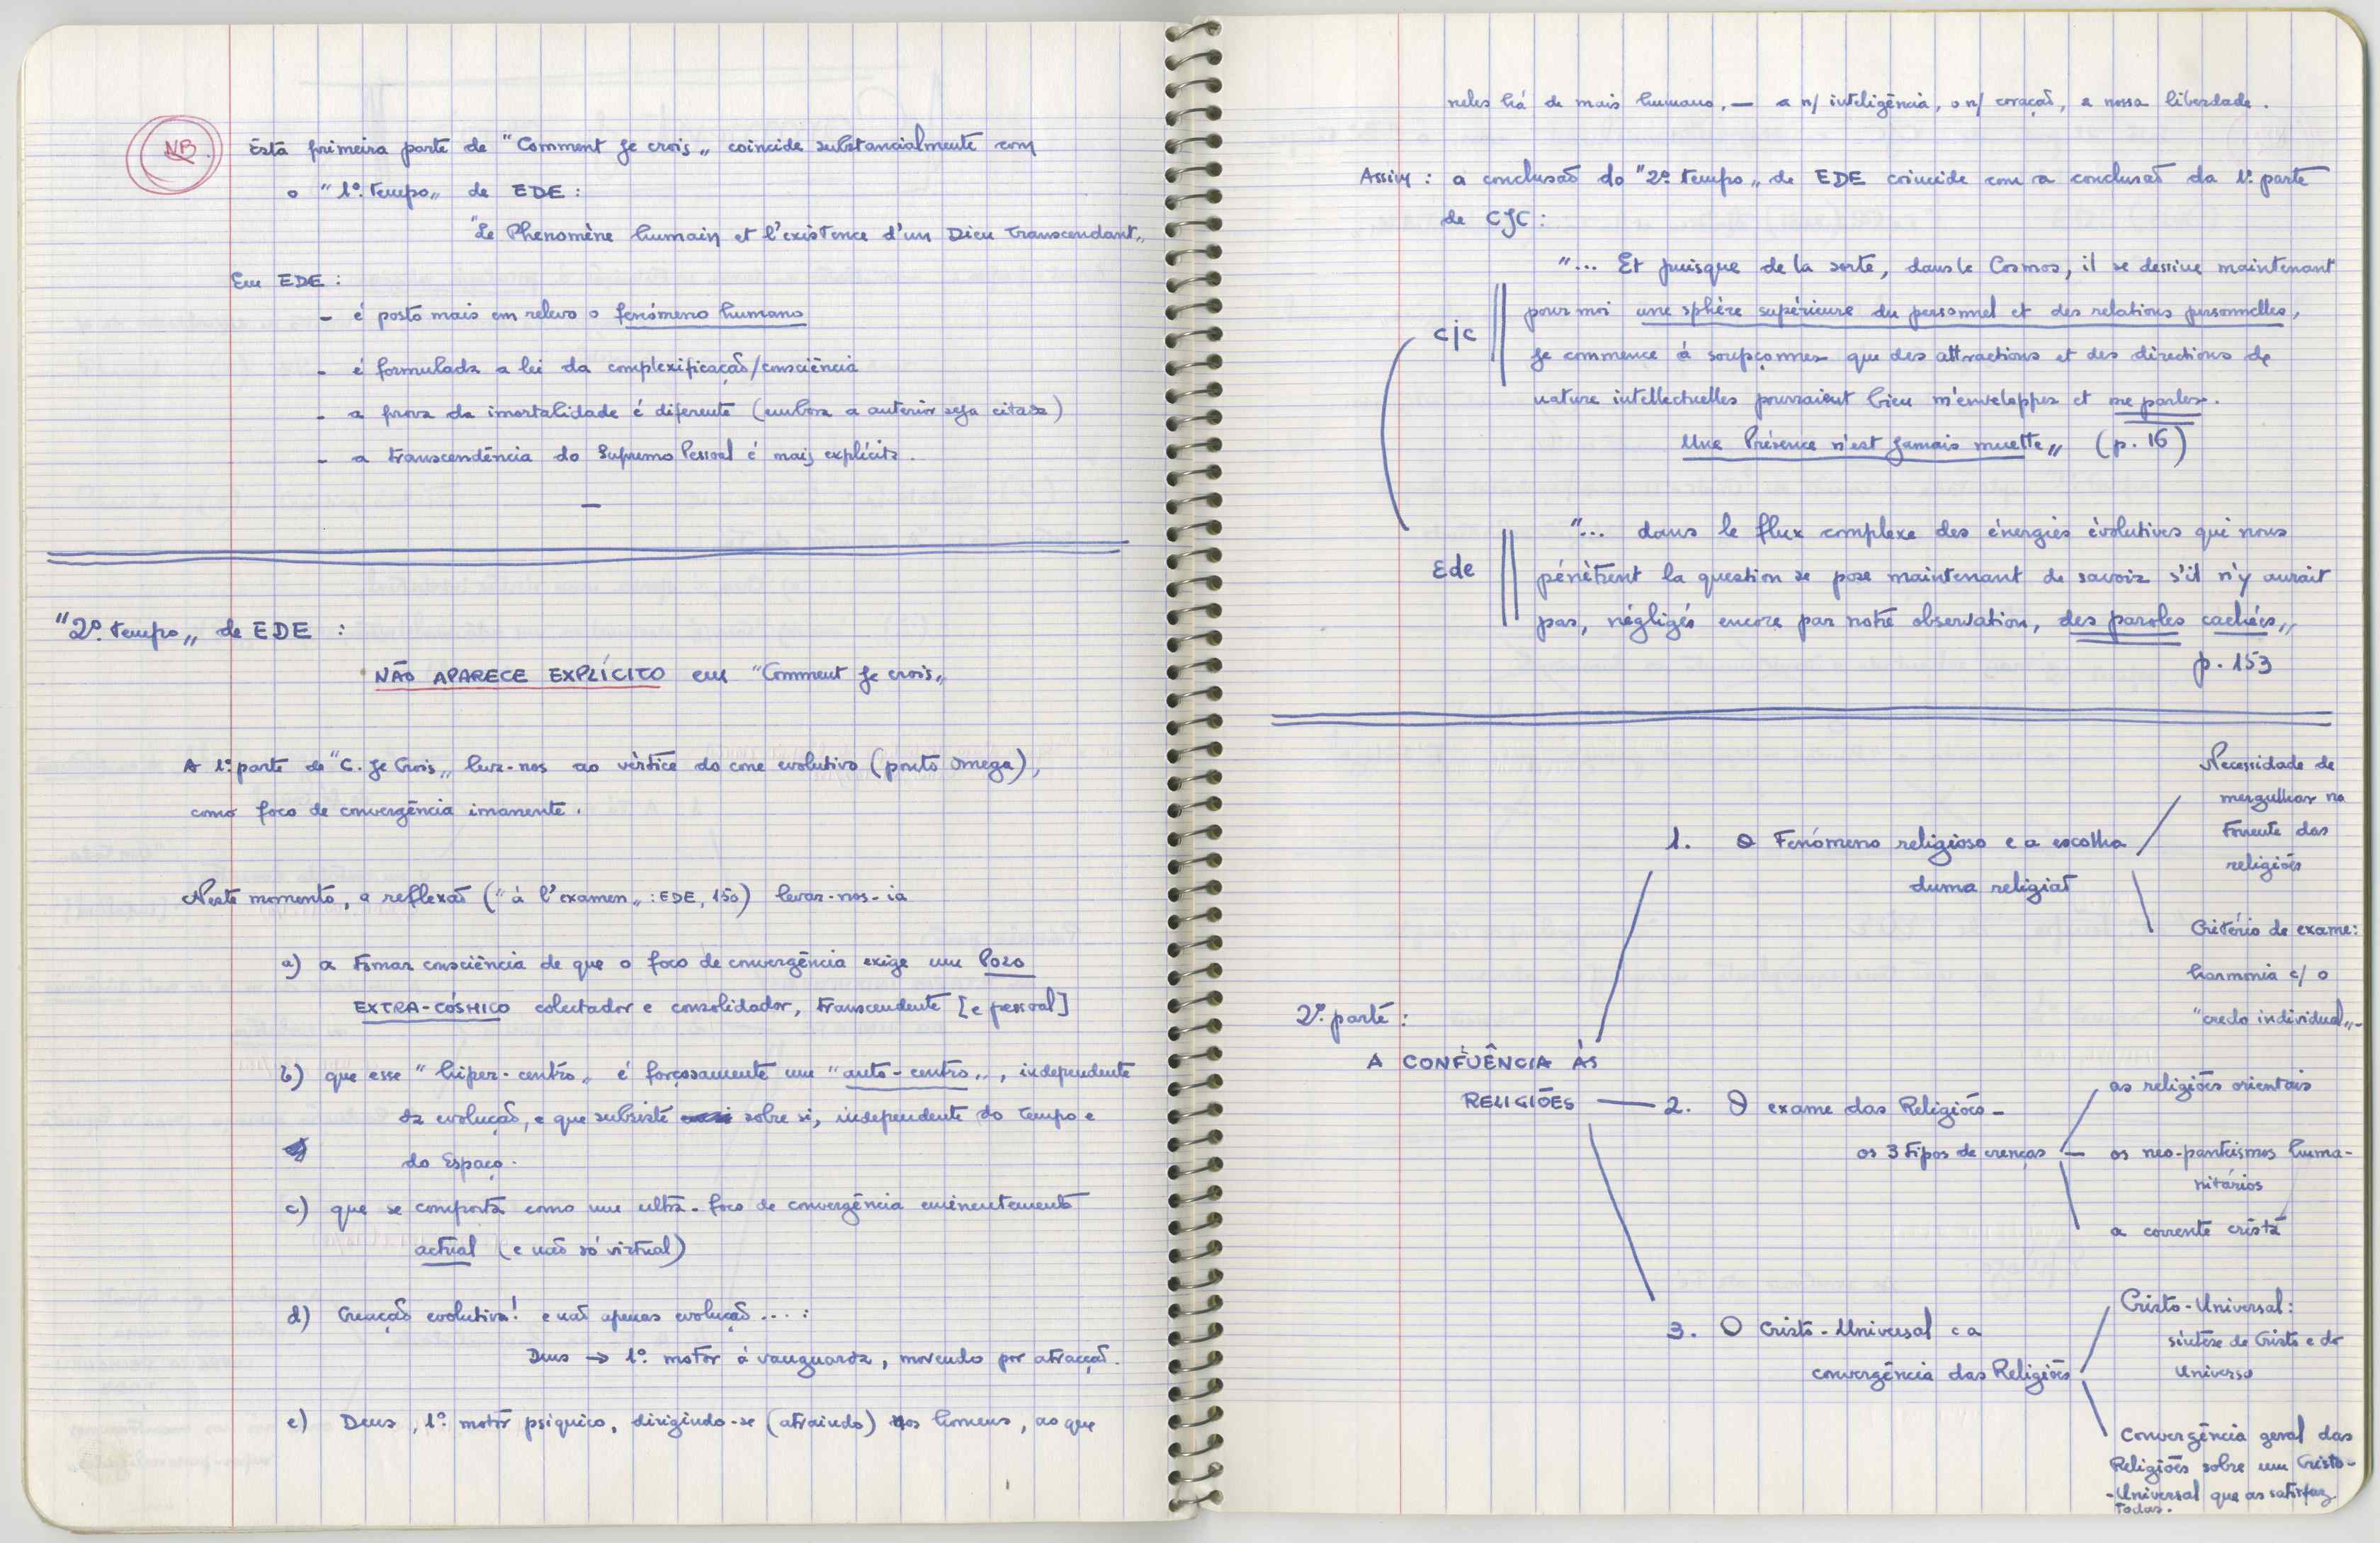 NB.
Esta primeira parte de "Comment je crois„ coincide substancialmente com
o "1º. tempo„ de EDE :
"Le Phenomène humain et l'existence d'un Dieu transcendant„
Em EDE :
- é posto mais em relevo o fenómeno humano
- é formulada a lei da complexificação/consciência
- a prova da imortalidade é diferente (embora a anterior seja citada)
- a transcendência do Supremo Pessoal é mais explícita.
—
"2º. tempo„ de EDE :
NÃO APARECE EXPLÍCITO em "Comment je crois„
A 1ª. parte de "C. je Crois„ leva-nos ao vértice do cone evolutivo (ponto Omega),
como foco de convergência imanente.
Neste momento, a reflexão ("à l'examen„ : EDE, 150) levar-nos-ia
a) a tomar consciência de que o foco de convergência exige um POLO
EXTRA-CÓSMICO colectador e consolidador, transcendente [e pessoal]
b) que esse "hiper-centro„ é forçosamente um "auto-centro„, independente
da evolução, e que subsiste sobre si, independente do tempo e
do Espaço.
c) que se comporta como um ultra-foco de convergência eminentemente
actual (e não só virtual)
d) Creação evolutiva! e não apenas evolução.... :
Deus → 1º. motor à vanguarda, movendo por atracção.
e) Deus, 1º. motor psíquico, dirigindo-se (atraindo) aos homens, ao que
neles há de mais humano, — a n/ inteligência, o n/ coração, a nossa liberdade.
Assim : a conclusão do "2º. tempo„ de EDE coincide com a conclusão da 1ª. parte
de CJC :
"... Et puisque de la sorte, dans le Cosmos, il se dessine maintenant
cjc pour moi une sphère supérieure du personnel et des relations personnelles,
je commence à soupçonner que des attractions et des directions de
nature intellectuelles pourraient bien m'envelopper et me parler.
Une Présence n'est jamais muette„ (p. 16)
"... dans le flux complexe des énergies évolutives qui nous
Ede pénètrent la question se pose maintenant de savoir s'il n'y aurait
pas, négligés encore par notre observation, des paroles cachées„
p. 153
2ª. parte :
A CONFLUÊNCIA ÀS
RELIGIÕES
1. O Fenómeno religioso e a escolha
duma religião
Necessidade de
mergulhar na
torrente das
religiões
Critério de exame:
harmonia c/ o
"credo individual„-
2. O exame das Religiões -
os 3 tipos de crenças
as religiões orientais
os neo-panteismos huma-
nitários
a corrente cristã
3. O Cristo-Universal e a
convergência das Religiões
Cristo-Universal:
síntese de Cristo e do
Universo
Convergência geral das
Religiões sobre um Cristo-
-Universal que as satisfaz
todas.